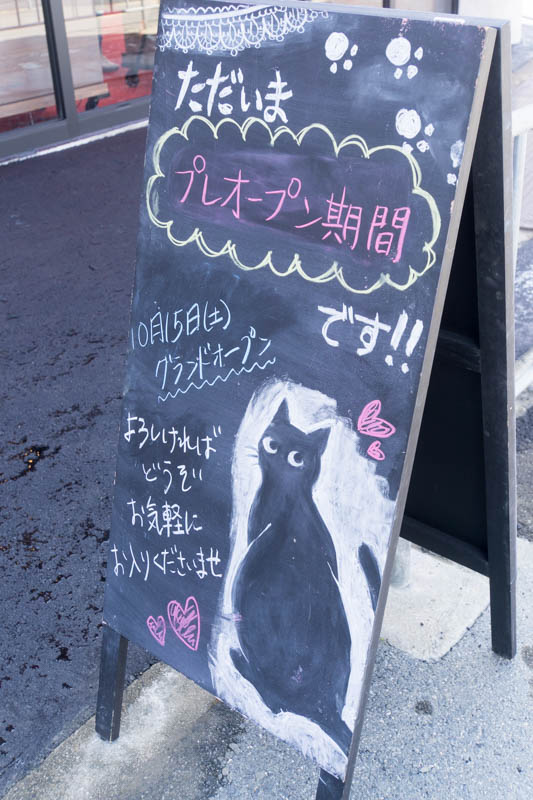 ただいま
プレオープン期間
です!!
10月15日(土)
グランドオープン
よろしければ
どうぞ
お気軽に
お入りくださいませ